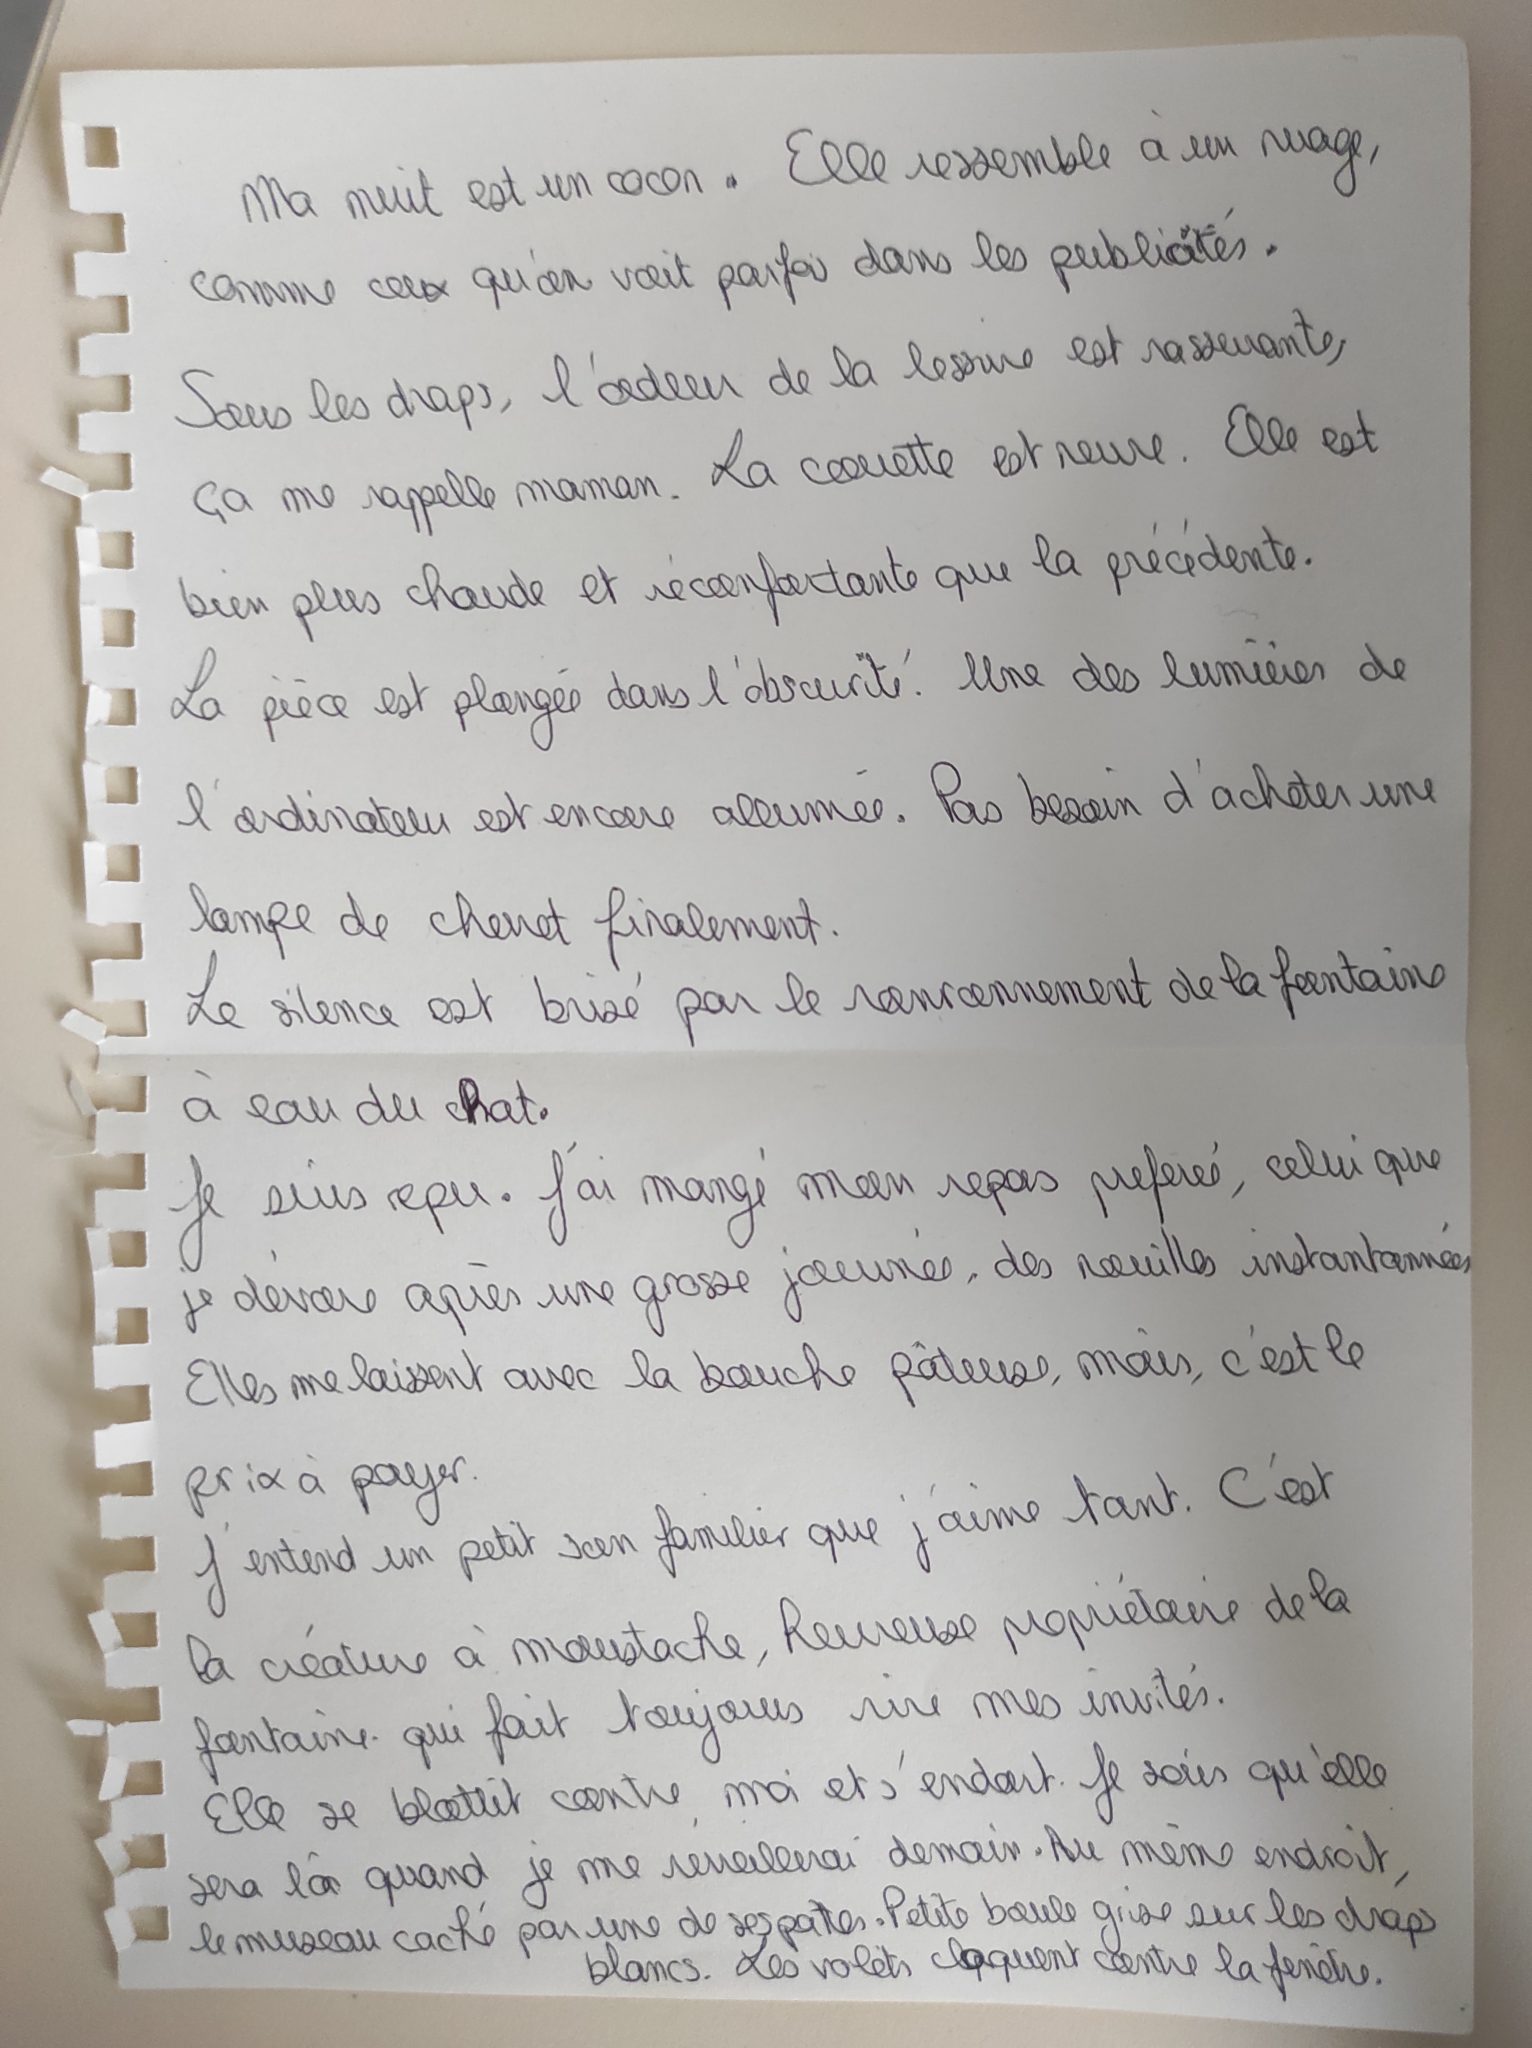 Ma nuit est un cocon. Elle ressemble à un nuage,
comme ceux qu'on voit parfois dans les publicités.
Sous les draps, l'odeur de la lessive est rassurante,
ça me rappelle maman. La couette est neuve. Elle est
bien plus chaude et réconfortante que la précédente.
La pièce est plongée dans l'obscurité. Une des lumières de
l'ordinateur est encore allumée. Pas besoin d'acheter une
lampe de chevet finalement.
Le silence est brisé par le ronronnement de la fontaine
à eau du chat.
Je suis repu. J'ai mangé mon repas preferé, celui que
je dévore après une grosse journée, des nouilles instantannées
Elles me laissent avec la bouche pâteuse, mais, c'est le
prix à payer.
J'entend un petit son familier que j'aime tant. C'est
la créature à moustache, heureuse propriétaire de la
fontaine qui fait toujours rire mes invités.
Elle se blottit contre moi et s'endort. Je sais qu'elle
sera là quand je me réveillerai demain. Au même endroit,
le museau caché par une de ses pattes. Petite boule grise sur les draps
blancs. Les volets claquent contre la fenêtre.